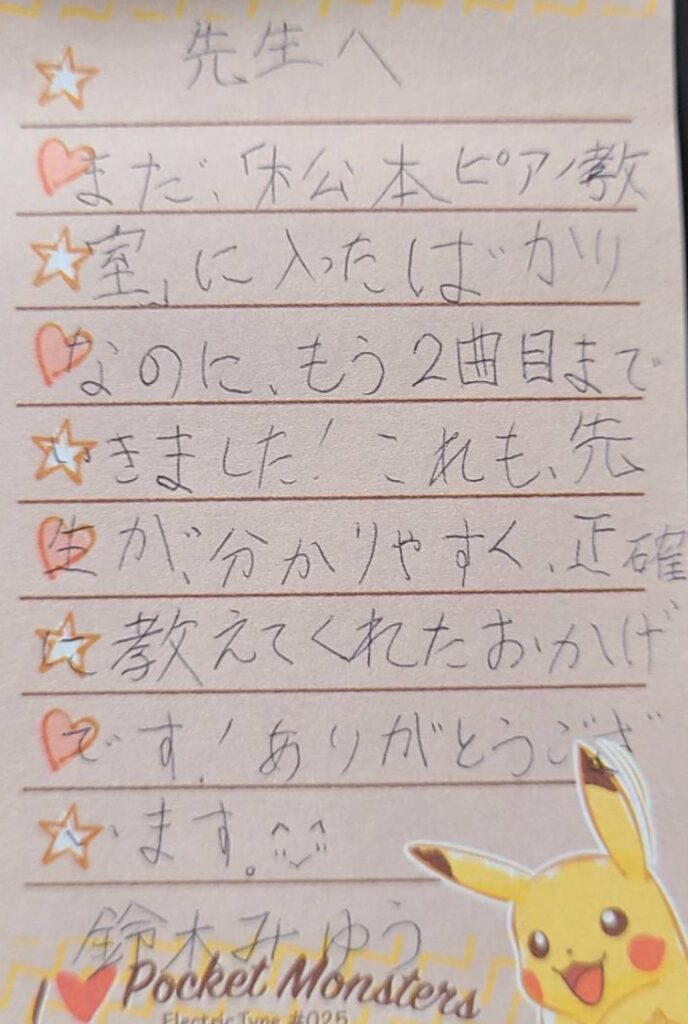 先生へ
まだ、「松本ピアノ教
室」に入ったばかり
なのに、もう2曲目まで
いきました!これも、先
生が、分かりやすく、正確
に教えてくれたおかげ
です!ありがとうござ
います。^_^
鈴木みゆう
I ♥ Pocket Monsters
Electric Type #025